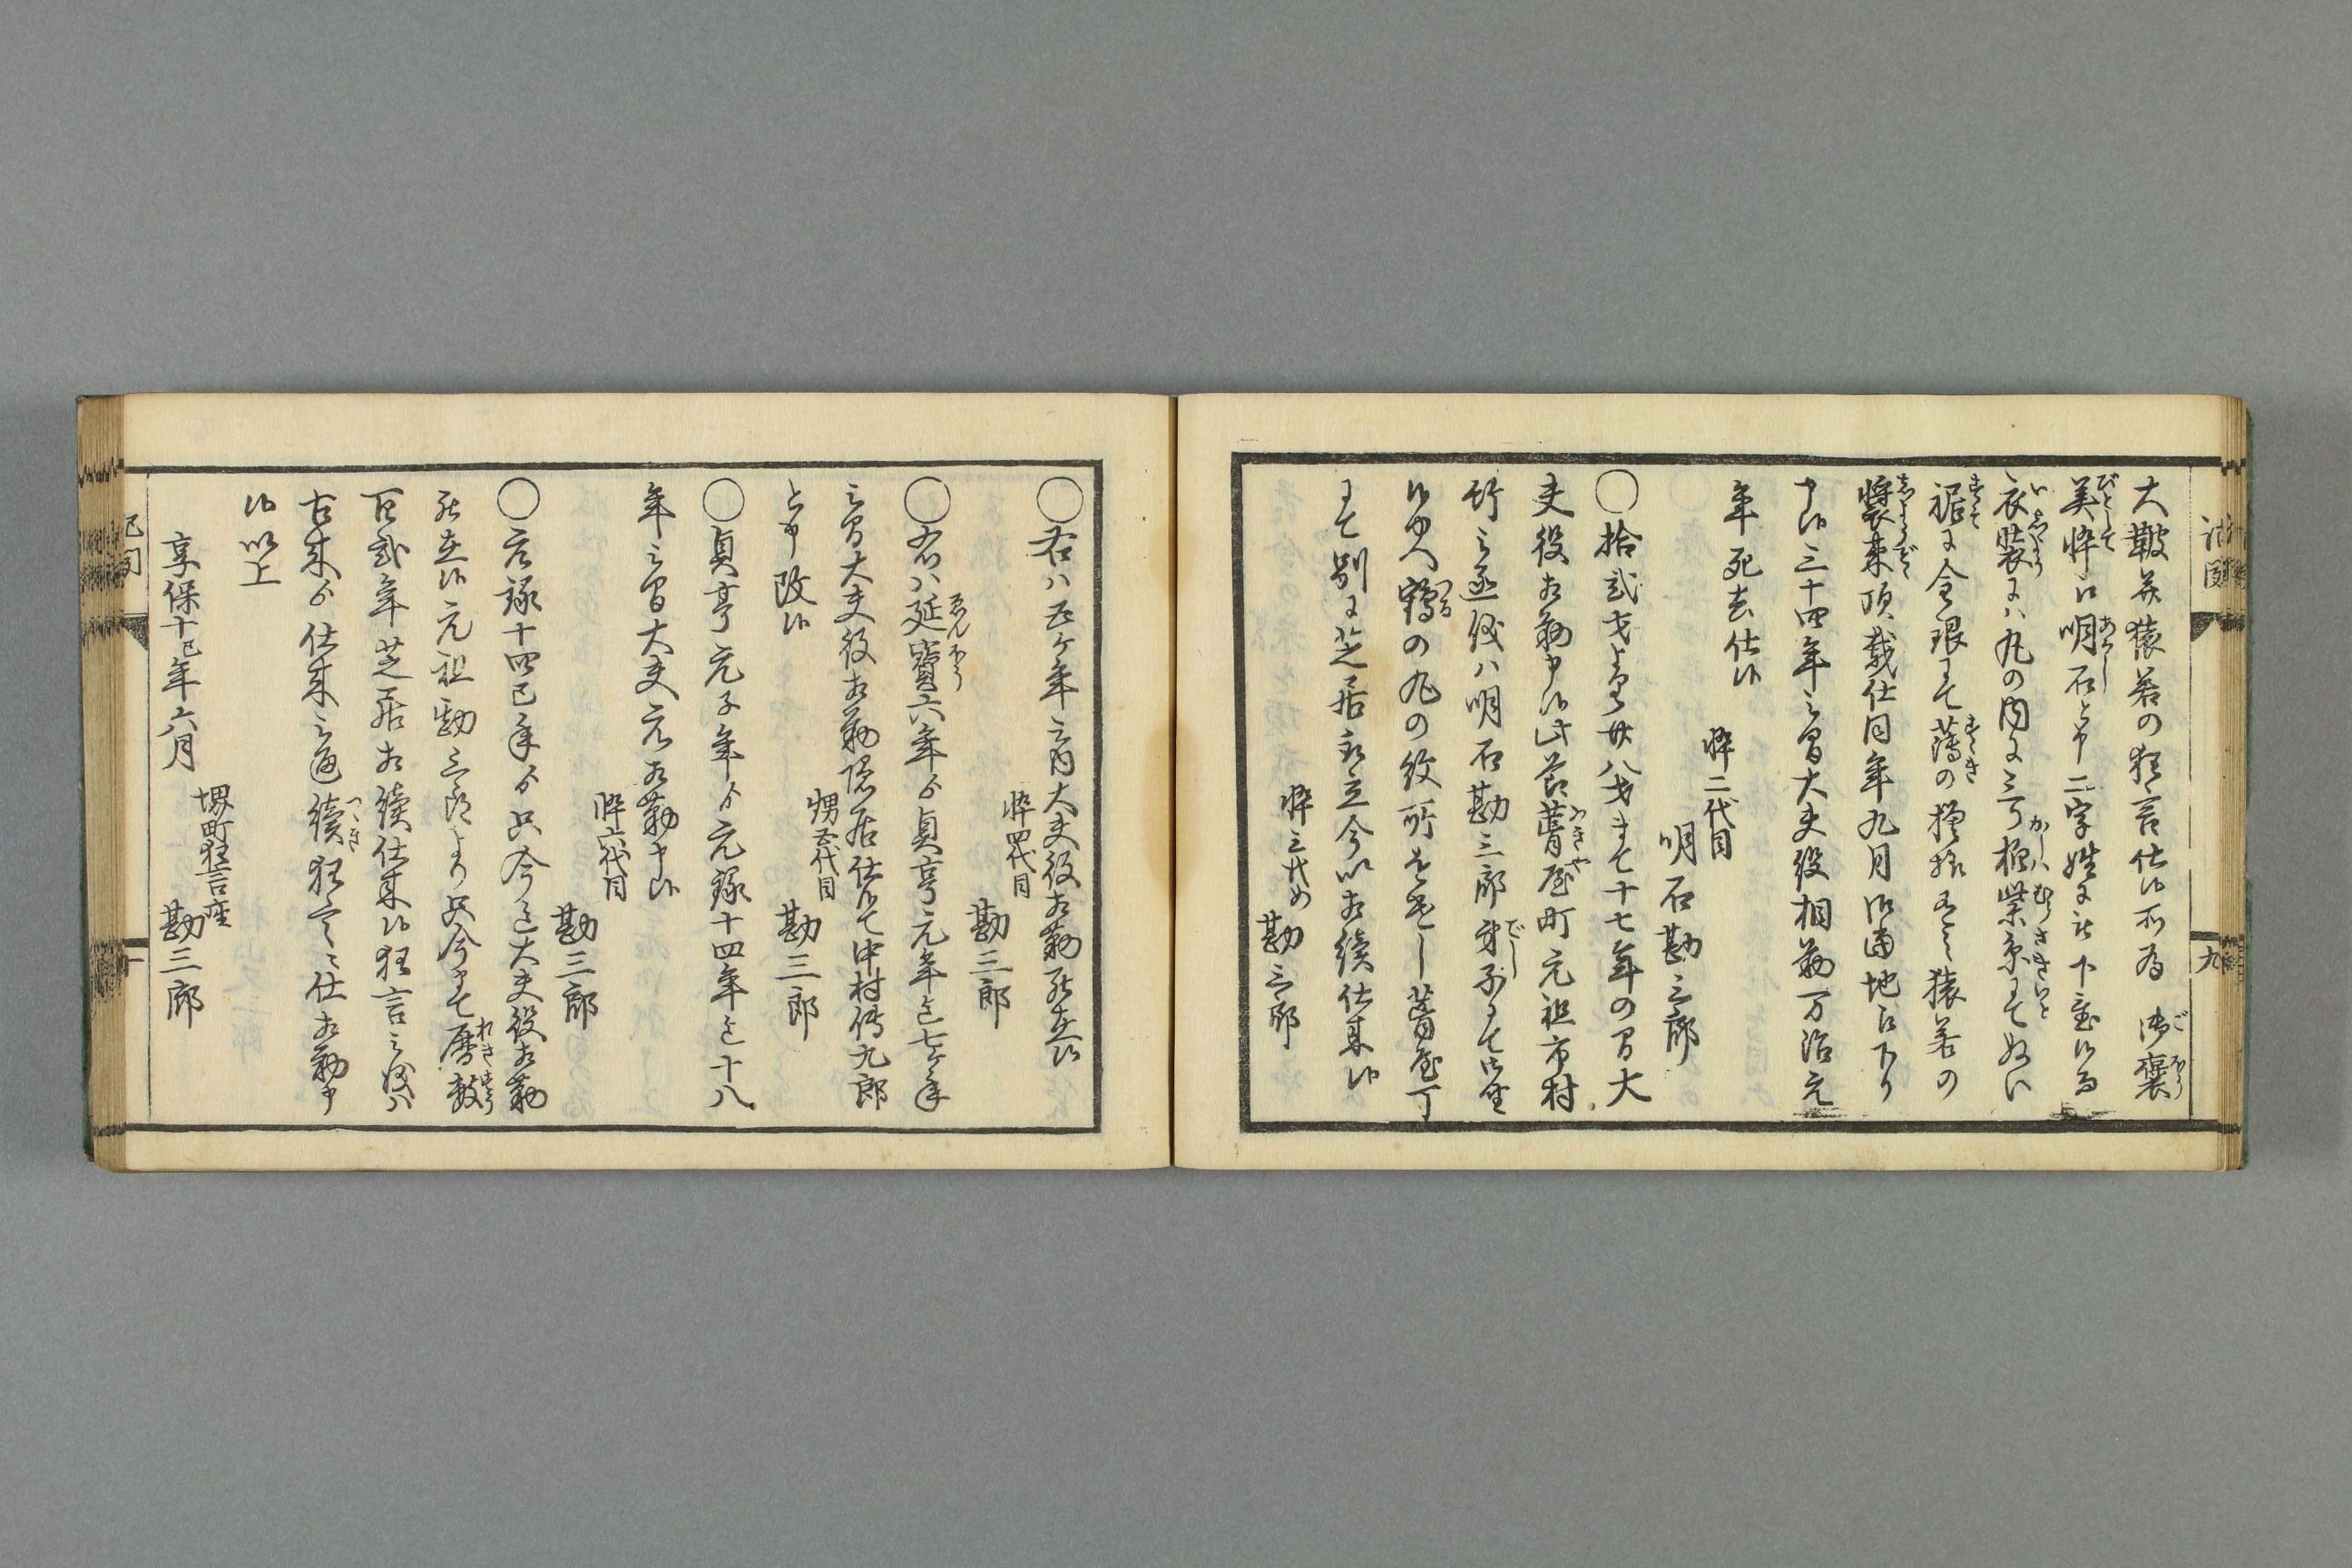 大鞁并猿若の狂言仕候所為御褒
美悴江明石与申二字姓に被下置候御
衣裳にハ丸の内に三ツ柏紫糸にてぬい
裾に金銀にて薄の模様有之猿若の
装束頂戴仕同年九月御當地江下り
申候三十四年之間大夫役相勤万治元
年死去仕候
悴二代目
明石勘三郎
◯拾弐才より廿八才まて十七年の間大
夫役相勤申候此節葺屋町元祖市村
竹之丞儀ハ明石勘三郎弟子にて御座
候ゆへ鶴の丸の紋所を遣し葺屋丁
にて別に芝居取立今以相續仕来候
悴三代め
勘三郎
◯右ハ五ヶ年之内大夫役相勤死去候
悴四代目
勘三郎
◯右ハ延寳六年ゟ貞享元年迄七ヶ年
之間大夫役相勤隠居仕候て中村傳九郎
と申改候
甥五代目
勘三郎
◯貞享元子年ゟ元禄十四年迄十八
年之間大夫元相勤申候
悴六代目
勘三郎
◯元禄十四巳年ゟ只今迄大夫役相勤
罷在候元祖勘三郎より只今まて暦数
百弐年芝居相續仕来候狂言之儀ハ
古来ゟ仕来之通續狂言仕相勤申
候以上
享保十巳年六月
堺町狂言座
勘三郎
九